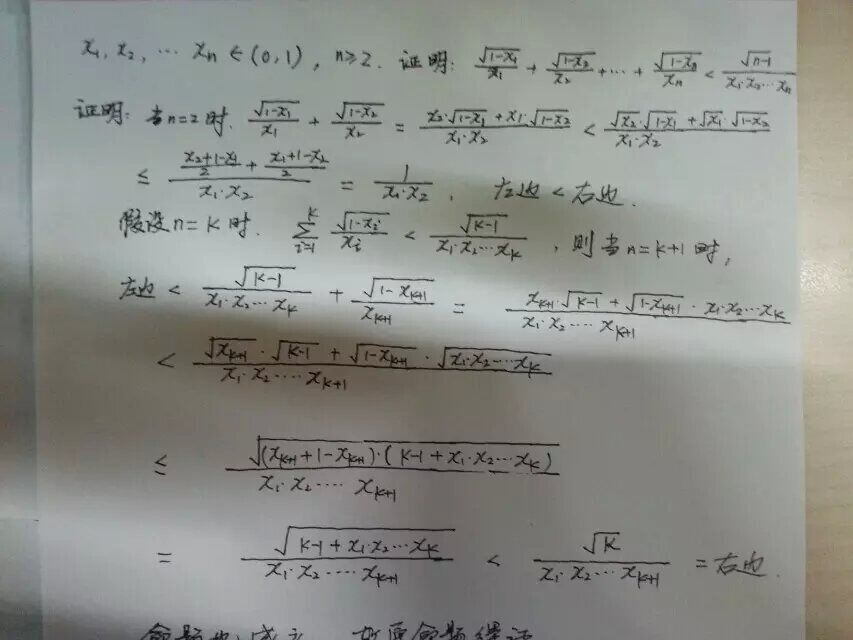 x₁, x₂, … xₙ ∈ (0,1), n≥2. 证明: √(1-x₁)/x₁ + √(1-x₂)/x₂ + … + √(1-xₙ)/xₙ < √(n-1)/(x₁·x₂…xₙ)
证明: 当n=2时. √(1-x₁)/x₁ + √(1-x₂)/x₂ = (x₂·√(1-x₁) + x₁·√(1-x₂))/(x₁·x₂) < (√x₂·√(1-x₁) + √x₁·√(1-x₂))/(x₁·x₂)
≤ ((x₂+1-x₁)/2 + (x₁+1-x₂)/2)/(x₁·x₂) = 1/(x₁·x₂), 左边 < 右边.
假设n=k时. ∑_{i=1}^{k} √(1-xᵢ)/xᵢ < √(k-1)/(x₁·x₂…x_k), 则当n=k+1时,
左边 < √(k-1)/(x₁·x₂…x_k) + √(1-x_{k+1})/x_{k+1} = (x_{k+1}·√(k-1) + √(1-x_{k+1})·x₁·x₂…x_k)/(x₁·x₂…x_{k+1})
< (√x_{k+1}·√(k-1) + √(1-x_{k+1})·√(x₁·x₂…x_k))/(x₁·x₂…x_{k+1})
≤ √((x_{k+1}+1-x_{k+1})·(k-1+x₁·x₂…x_k))/(x₁·x₂…x_{k+1})
= √(k-1+x₁·x₂…x_k)/(x₁·x₂…x_{k+1}) < √k/(x₁·x₂…x_{k+1}) = 右边.
命题也成立. 故原命题得证